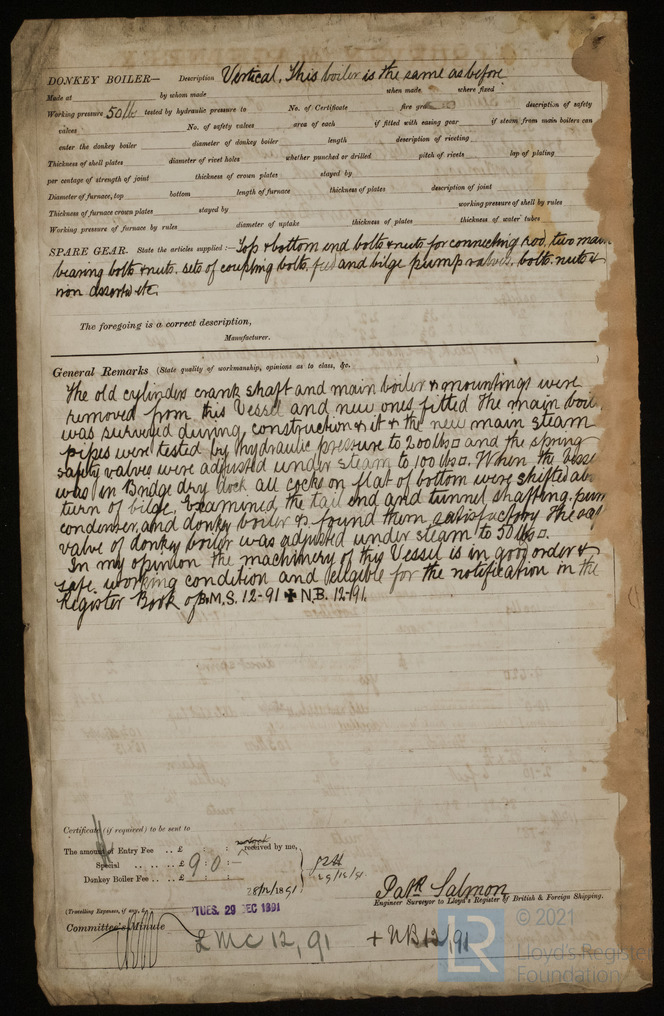 DONKEY BOILER— Description Vertical, This boiler is the same as before
Made at by whom made when made where fixed
Working pressure 50lb tested by hydraulic pressure to No. of Certificate fire gra description of safety
valves No. of safety valves area of each if fitted with easing gear if steam from main boilers can
enter the donkey boiler diameter of donkey boiler length description of riveting
Thickness of shell plates diameter of rivet holes whether punched or drilled pitch of rivets lap of plating
per centage of strength of joint thickness of crown plates stayed by
Diameter of furnace, top bottom length of furnace thickness of plates description of joint
Thickness of furnace crown plates stayed by working pressure of shell by rules
Working pressure of furnace by rules diameter of uptake thickness of plates thickness of water tubes
SPARE GEAR. State the articles supplied:— Top & bottom end bolts & nuts for connecting rod, two main
bearing bolts & nuts. sets of coupling bolts, feed and bilge pump valves, bolts. nuts &
iron assorted etc.
The foregoing is a correct description,
Manufacturer.
General Remarks (State quality of workmanship, opinions as to class, &c.
The old cylinders crank shaft and main boiler & mountings were
removed from this Vessel and new ones fitted The main boil
was surveyed during construction & it & the new main steam
pipes were tested by hydraulic pressure to 200lbs□ and the spring
safety valves were adjusted under steam to 100lbs□. When the Vesse
was in Bridge dry dock all cocks on flat of bottom were shifted abo
turn of bilge, Examined the tail end and tunnel shafting, pum
condenser, and donkey boiler & found them satisfactory The saf
valve of donkey boiler was adjusted under steam to 50lbs□.
In my opinion the machinery of this Vessel is in good order &
safe working condition and eligible for the notification in the
Register Book of B.M.S. 12-91 ✠ N.B. 12-91.
Certificate (if required) to be sent to
The amount of Entry Fee .. £ : : received by me,
Special .. .. .. £ 9 : 0 : —
Donkey Boiler Fee .. .. £ : :
28/12/1891
(Travelling Expenses, if any, £ )
TUES. 29 DEC 1891
Patk Salmon
Engineer Surveyor to Lloyd's Register of British & Foreign Shipping.
Committee's Minute
LMC 12,91 + NB 12/91
LR © 2021
Lloyd's Register
Foundation